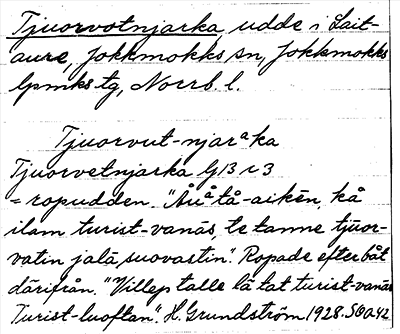 Tjuorvotnjarka, udde i Lait-
aure, Jokkmokks sn, Jokkmokks
lpmks tg, Norrb. l.
Tjuorvut-njarᵃka
Tjuorvetnjarka G13 r3
= ropudden. "Åuᵃtå-aikēn, kå
ilam turist-vanås, te tamne tjuor-
vatin jalå suovastin". Ropade efter båt
därifrån. "Villep talle lå tat turist-vanås
Turist-luoftan". H. Grundström 1928. SOA42